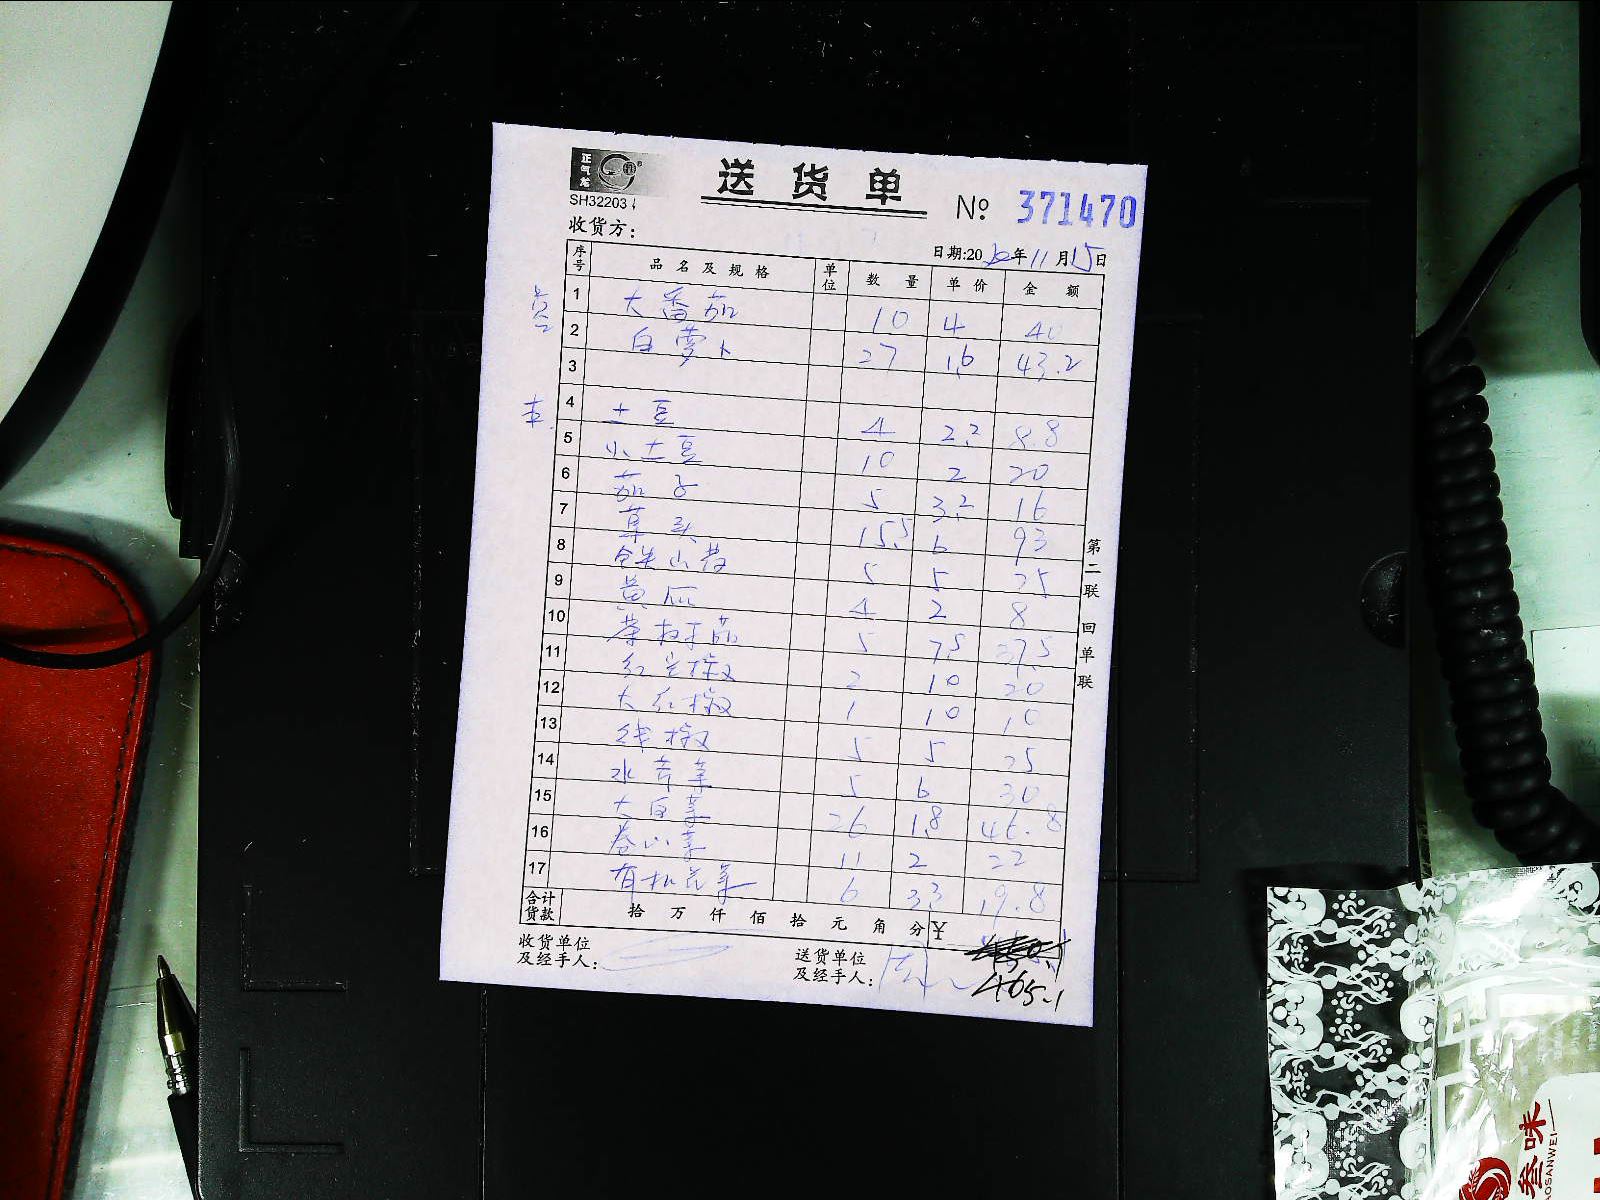 正气龙
SH32203
送货单
№ 371470
收货方：
日期:2020年11月15日
序号 品名及规格 单位 数量 单价 金额
1 大番茄 10 4 40
2 白萝卜 27 1.6 43.2
3
4 土豆 4 2.2 8.8
5 小土豆 10 2 20
6 茄子 5 3.2 16
7 草头 15.5 6 93
8 铁山药 5 5 25
9 黄瓜 4 2 8
10 茶树菇 5 7.5 37.5
11 红尖椒 2 10 20
12 大红椒 1 10 10
13 线椒 5 5 25
14 水芹菜 5 6 30
15 大白菜 26 1.8 46.8
16 卷心菜 11 2 22
17 有机花菜 6 3.3 19.8
合计货款 拾万仟佰拾元角分 ¥
465.1
收货单位及经手人：
送货单位及经手人：
第二联 回单联
叁味